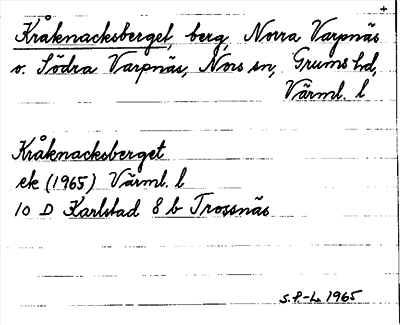 +
Kråknacksberget, berg, Norra Varpnäs
o. Södra Varpnäs, Nors sn, Grums hd,
Värml. l
Kråknacksberget
ek (1965) Värml. l
10 D Karlstad 8 b Trossnäs
S.P-L. 1965